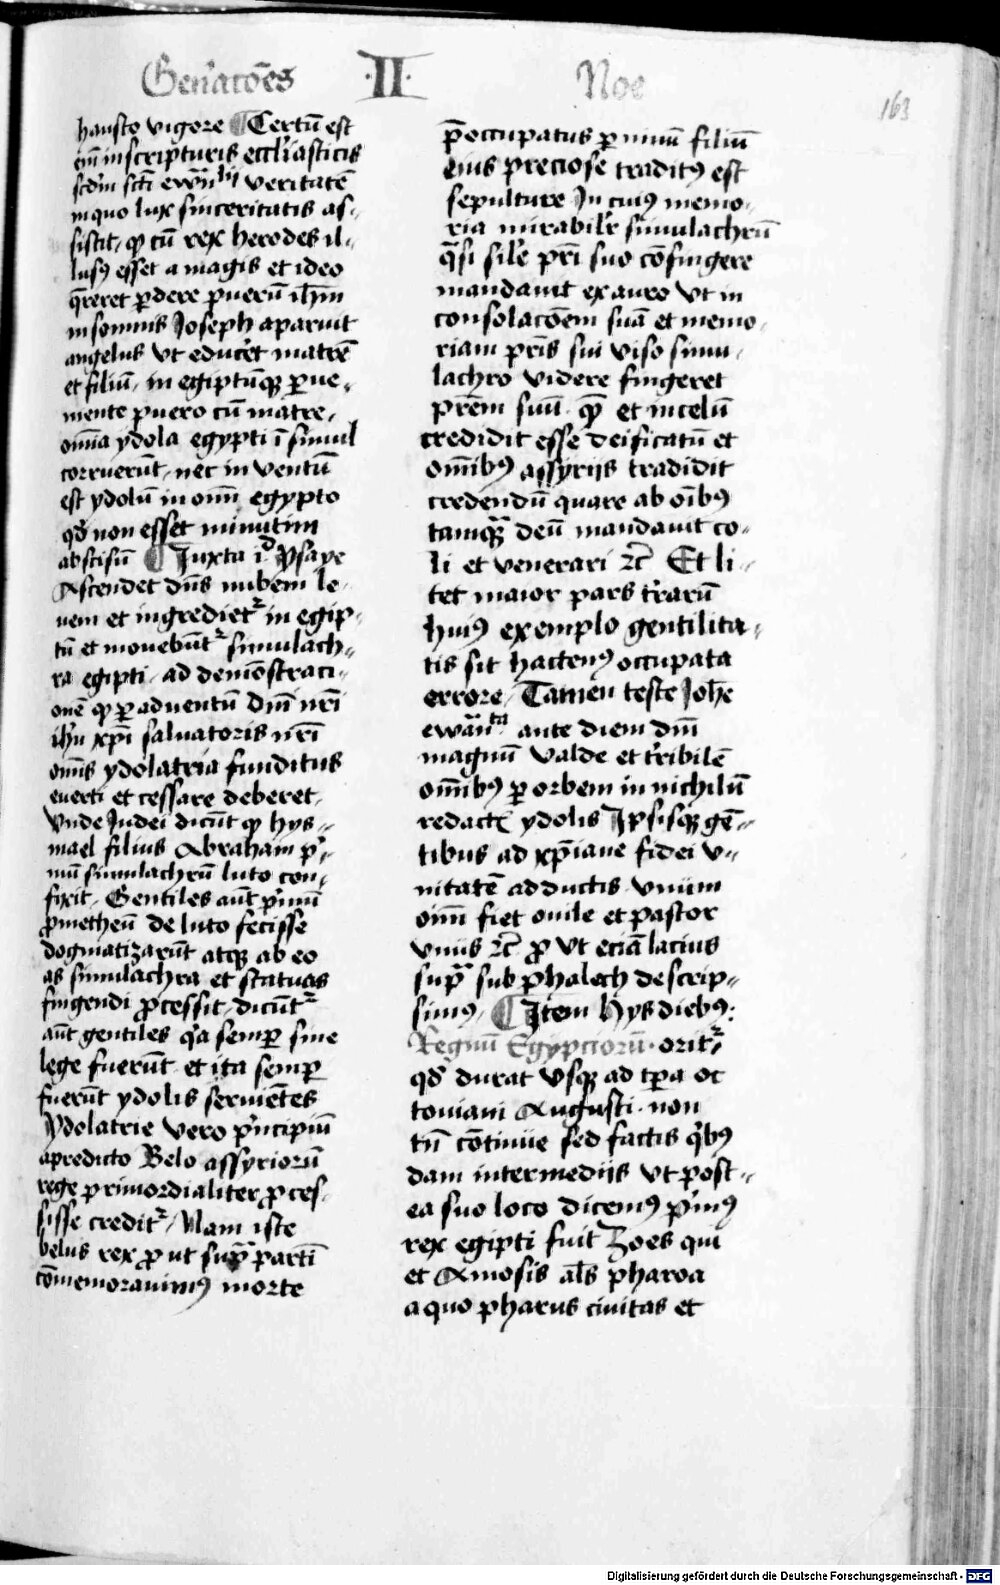 Gen̄atōes ·II· Noe
163
hausto vigore ¶ Certū est
em̄ in scripturis eccl'iasticis
scd'm sc̄ti ewāli veritatē
in quo lux sinceritatis as-
sistit, qꝫ cū rex herodes il-
lusꝰ esset a magis et ideo
q̄reret ꝑdere puerū ih'm
in somnis Joseph aparuit
angelus vt educ'et matrē
et filiū, in egiptūqꝫ ꝑue-
niente puero cū matre,
om̄ia ydola egypti ī simul
corruerūt, nec in ventū
est ydolū in om̄i egypto
qd' non esset minutim
abscisū ¶ Juxta id ysaye
Ascendet dn̄s nubem le-
uem et ingrediet᷑ in egip-
tū et mouebūt᷑ simulach-
ra egipti, ad demōstraci-
onē qꝫ ꝑ aduentū dn̄i nr̄i
ih'u xp̄i saluatoris nr̄i
om̄is ydolatria funditus
euerti et cessare deberet,
vnde Judei dicūt qꝫ hys-
mael filius Abraham p'-
mū simulachrū luto con-
fixit, Gentiles aūt p'mū
ꝓmetheū de luto fecisse
dogmatizarūt atqꝫ ab eo
as simulachra et statuas
fingendi ꝓcessit, dicūt᷑
aūt gentiles q'a semꝑ sine
lege fuerūt et ita semꝑ
fuerūt ydolis seruiētes
Ydolatrie vero p'ncipiū
a predicto Belo assyriorū
rege primordialiter ꝓces-
sisse credit᷑, Nam iste
belus rex ꝓ ut sup̄ partī
cōmemorauimꝰ morte
p̄occupatus ꝑ ninū filiū
eius preciose traditꝰ est
sepulture In cuiꝰ memo-
ria mirabilr' simulachrū
q̄si sil'e pr̄i suo cōfingere
mandauit ex auro vt in
consolacōem suā et memo-
riam pr̄is sui viso simu-
lachro videre fingeret
pr̄em suū qꝫ et in celū
credidit esse deificatū et
om̄ibꝰ assyrijs tradidit
credendū quare ab oībꝰ
tamqꝫ deū mandauit co-
li et venerari ꝛc̄ Et li-
cet maior pars t'rarū
huiꝰ exemplo gentilita-
tis sit hactenꝰ occupata
errore, Tamen teste Joh'e
ewān'ta ante diem dn̄i
magnū valde et t'ribilē
om̄ibꝰ ꝑ orbem in nichilū
redactꝭ ydolis Ipsisqꝫ gē-
tibus ad xp̄iane fidei v-
nitatē adductis vnum
oīm fiet ouile et pastor
vnus ꝛc̄ ꝓ vt eciā lacius
sup̄ sub phalech descrip-
simꝰ, ¶ Item hys diebꝰ:
Regnū Egypciorū · orit᷑
qd' durat vsqꝫ ad tp̄a oc
touiani Augusti · non
tn̄ cōtinue sed factis q'bꝰ
dam intermedijs vt post-
ea suo loco dicemꝰ p'mꝰ
rex egipti fuit Zoes qui
et Amosis al's pharoa
a quo pharus ciuitas et
Digitalisierung gefördert durch die Deutsche Forschungsgemeinschaft - DFG